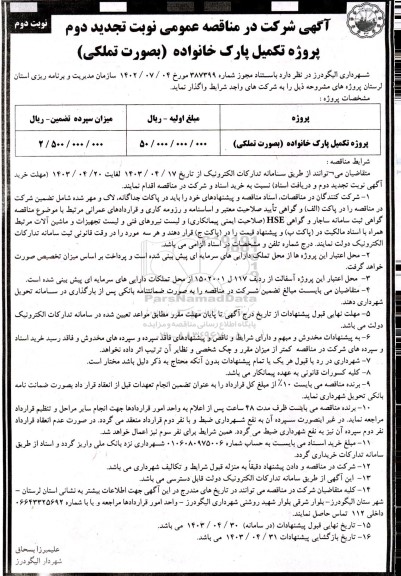 نوبت دوم
آگهی شرکت در مناقصه عمومی نوبت تجدید دوم
پروژه تکمیل پارک خانواده (بصورت تملکی)
شهرداری الیگودرز در نظر دارد باستناد مجوز شماره ۳۸۷۳۹۹ مورخ ۱۴۰۲/۰۷/۰۴ سازمان مدیریت و برنامه ریزی استان
لرستان پروژه های مشروحه ذیل را به شرکت های واجد شرایط واگذار نماید.
مشخصات پروژه :
پروژه	مبلغ اولیه - ریال	میزان سپرده تضمین- ریال
پروژه تکمیل پارک خانواده (بصورت تملکی)	۵۰/۰۰۰/۰۰۰/۰۰۰	۲/۵۰۰/۰۰۰/۰۰۰
شرایط مناقصه :
متقاضیان می توانند از طریق سامانه تدارکات الکترونیک از تاریخ ۱۴۰۳/۰۴/۱۷ لغایت ۱۴۰۳/۰۴/۲۰ (مهلت خرید
آگهی نوبت تجدید دوم و دریافت اسناد) نسبت به خرید اسناد و شرکت در مناقصه اقدام نمایند.
۱- شرکت کنندگان در مناقصات، اسناد مناقصه و پیشنهادهای خود را باید در پاکات جداگانه، لاک و مهر شده شامل تضمین شرکت
در مناقصه را در پاکت (الف) و گواهی تأیید صلاحیت معتبر و اساسنامه و رزومه کاری و قراردادهای عمرانی مرتبط با موضوع مناقصه
گواهی ثبت سامانه ساجار و گواهی HSE (صلاحیت ایمنی پیمانکاری) و لیست نیروهای فنی و لیست تجهیزات و ماشین آلات مرتبط
همراه با اسناد مالکیت در (پاکت ب) و پیشنهاد قیمت را در (پاکت ج) قرار دهند و هر سه مورد را در وقت قانونی ثبت سامانه تدارکات
الکترونیک دولت نمایند. درج شماره تلفن و مشخصات در اسناد الزامی می باشد.
۲- محل اعتبار این پروژه ها از محل تملک دارایی های سرمایه ای پیش بینی شده است و پرداخت بر اساس میزان تخصیص صورت
خواهد گرفت.
۳- محل اعتبار این پروژه آسفالت از ردیف ۱۱۷ ل ۱۵۰۲۰۰۱ از محل تملکات دارایی های سرمایه ای پیش بینی شده است.
۴- متقاضیان می بایست مبالغ تضمین شرکت در مناقصه را به صورت ضمانتنامه بانکی پس از بارگذاری در سامانه تحویل
شهرداری دهند.
۵- مهلت نهایی قبول پیشنهادات از تاریخ درج آگهی تا پایان مهلت مقرر مطابق مواعد تعیین شده در سامانه تدارکات الکترونیک
دولت می باشد.
۶- به پیشنهادات مخدوش و مبهم و دارای شرایط و ناقص و پیشنهادهای فاقد سپرده و سپرده های مخدوش و فاقد رسید خرید اسناد
و سپرده های شرکت در مناقصه کمتر از میزان مقرر و چک شخصی و نظایر آن ترتیب اثر داده نخواهد.
۷- شهرداری در رد یا قبول هر یک یا تمام پیشنهادات بدون آنکه محتاج به ذکر دلیل باشد مختار است.
۸- کلیه کسورات قانونی به عهده پیمانکار می باشد.
۹- برنده مناقصه می بایست ۱۰٪ از مبلغ کل قرارداد را به عنوان تضمین انجام تعهدات قبل از انعقاد قرار داد بصورت ضمانت نامه
بانکی تحویل شهرداری نماید.
۱۰- برنده مناقصه می بایست ظرف مدت ۴۸ ساعت پس از اعلام به واحد امور قراردادها جهت انجام سایر مراحل و تنظیم قرارداد
مراجعه نماید. در غیر اینصورت سپرده آن به نفع شهرداری ضبط و با نفر دوم قرارداد منعقد می گردد. در صورت عدم انعقاد قرارداد
نفر دوم سپرده آن نیز به نفع شهرداری ضبط می گردد. همین شرایط برای نفر سوم نیز اعمال خواهد شد.
۱۱- مبلغ خرید اسناد می بایست به حساب شماره ۰۱۰۶۰۸۰۹۷۵۰۰۶ شهرداری نزد بانک ملی واریز گردد و اسناد از طریق
سامانه تدارکات خریداری گردد.
۱۲- شرکت در مناقصه و دادن پیشنهاد دقیقاً به منزله قبول شرایط و تکالیف شهرداری می باشد.
۱۳- این آگهی از طریق سامانه تدارکات الکترونیک دولت قابل دسترسی می باشد.
۱۴- کلیه متقاضیان شرکت در مناقصه می توانند در تاریخ های مندرج در این آگهی جهت اطلاعات بیشتر به نشانی استان لرستان -
شهرستان الیگودرز- بلوار شرقی بلوار شهید روشنی شهرداری الیگودرز - واحد امور قراردادها مراجعه و یا با شماره ۰۶۶۴۳۳۲۵۶۹۲
داخلی ۱۱۲ تماس حاصل نمایند.
۱۵- تاریخ نهایی قبول پیشنهادات (در سامانه) ۱۴۰۳/۰۴/۳۰ می باشد.
۱۶- تاریخ بازگشایی پیشنهادات ۱۴۰۳/۰۴/۳۱ می باشد.
علیمیرزا یسحاق
شهردار الیگودرز
ParsNamadData